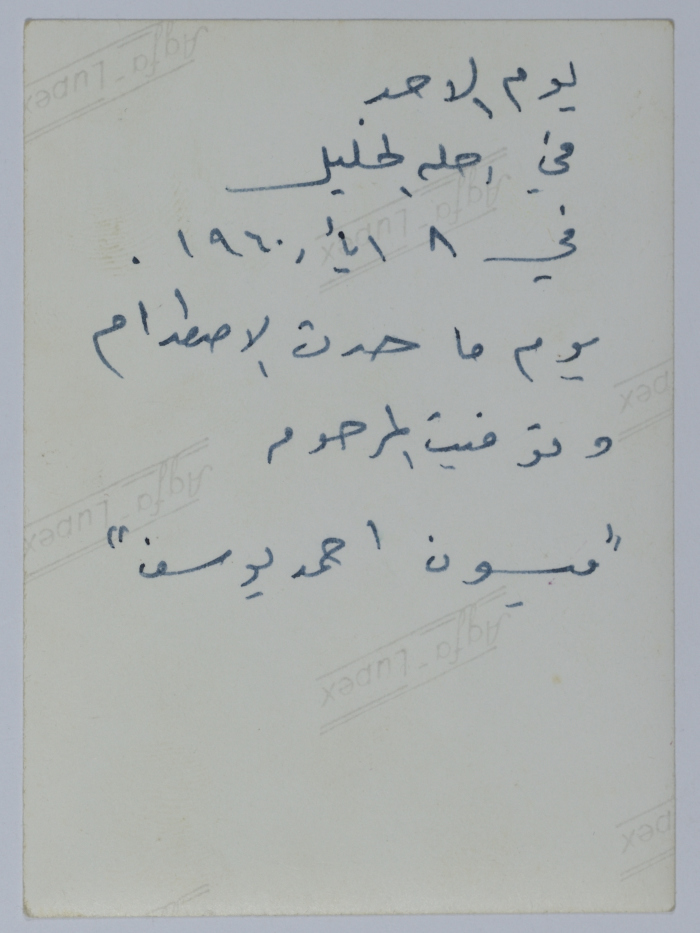 يوم الاحد
في رحله الخليل
في ٨ ايار ١٩٦٠ .
يوم ما حدث الاصطدام
و توفيت المرحوم
"ميسون احمد يوسف"
Agfa-Lupex
Agfa-Lupex
Agfa-Lupex
Agfa-Lupex